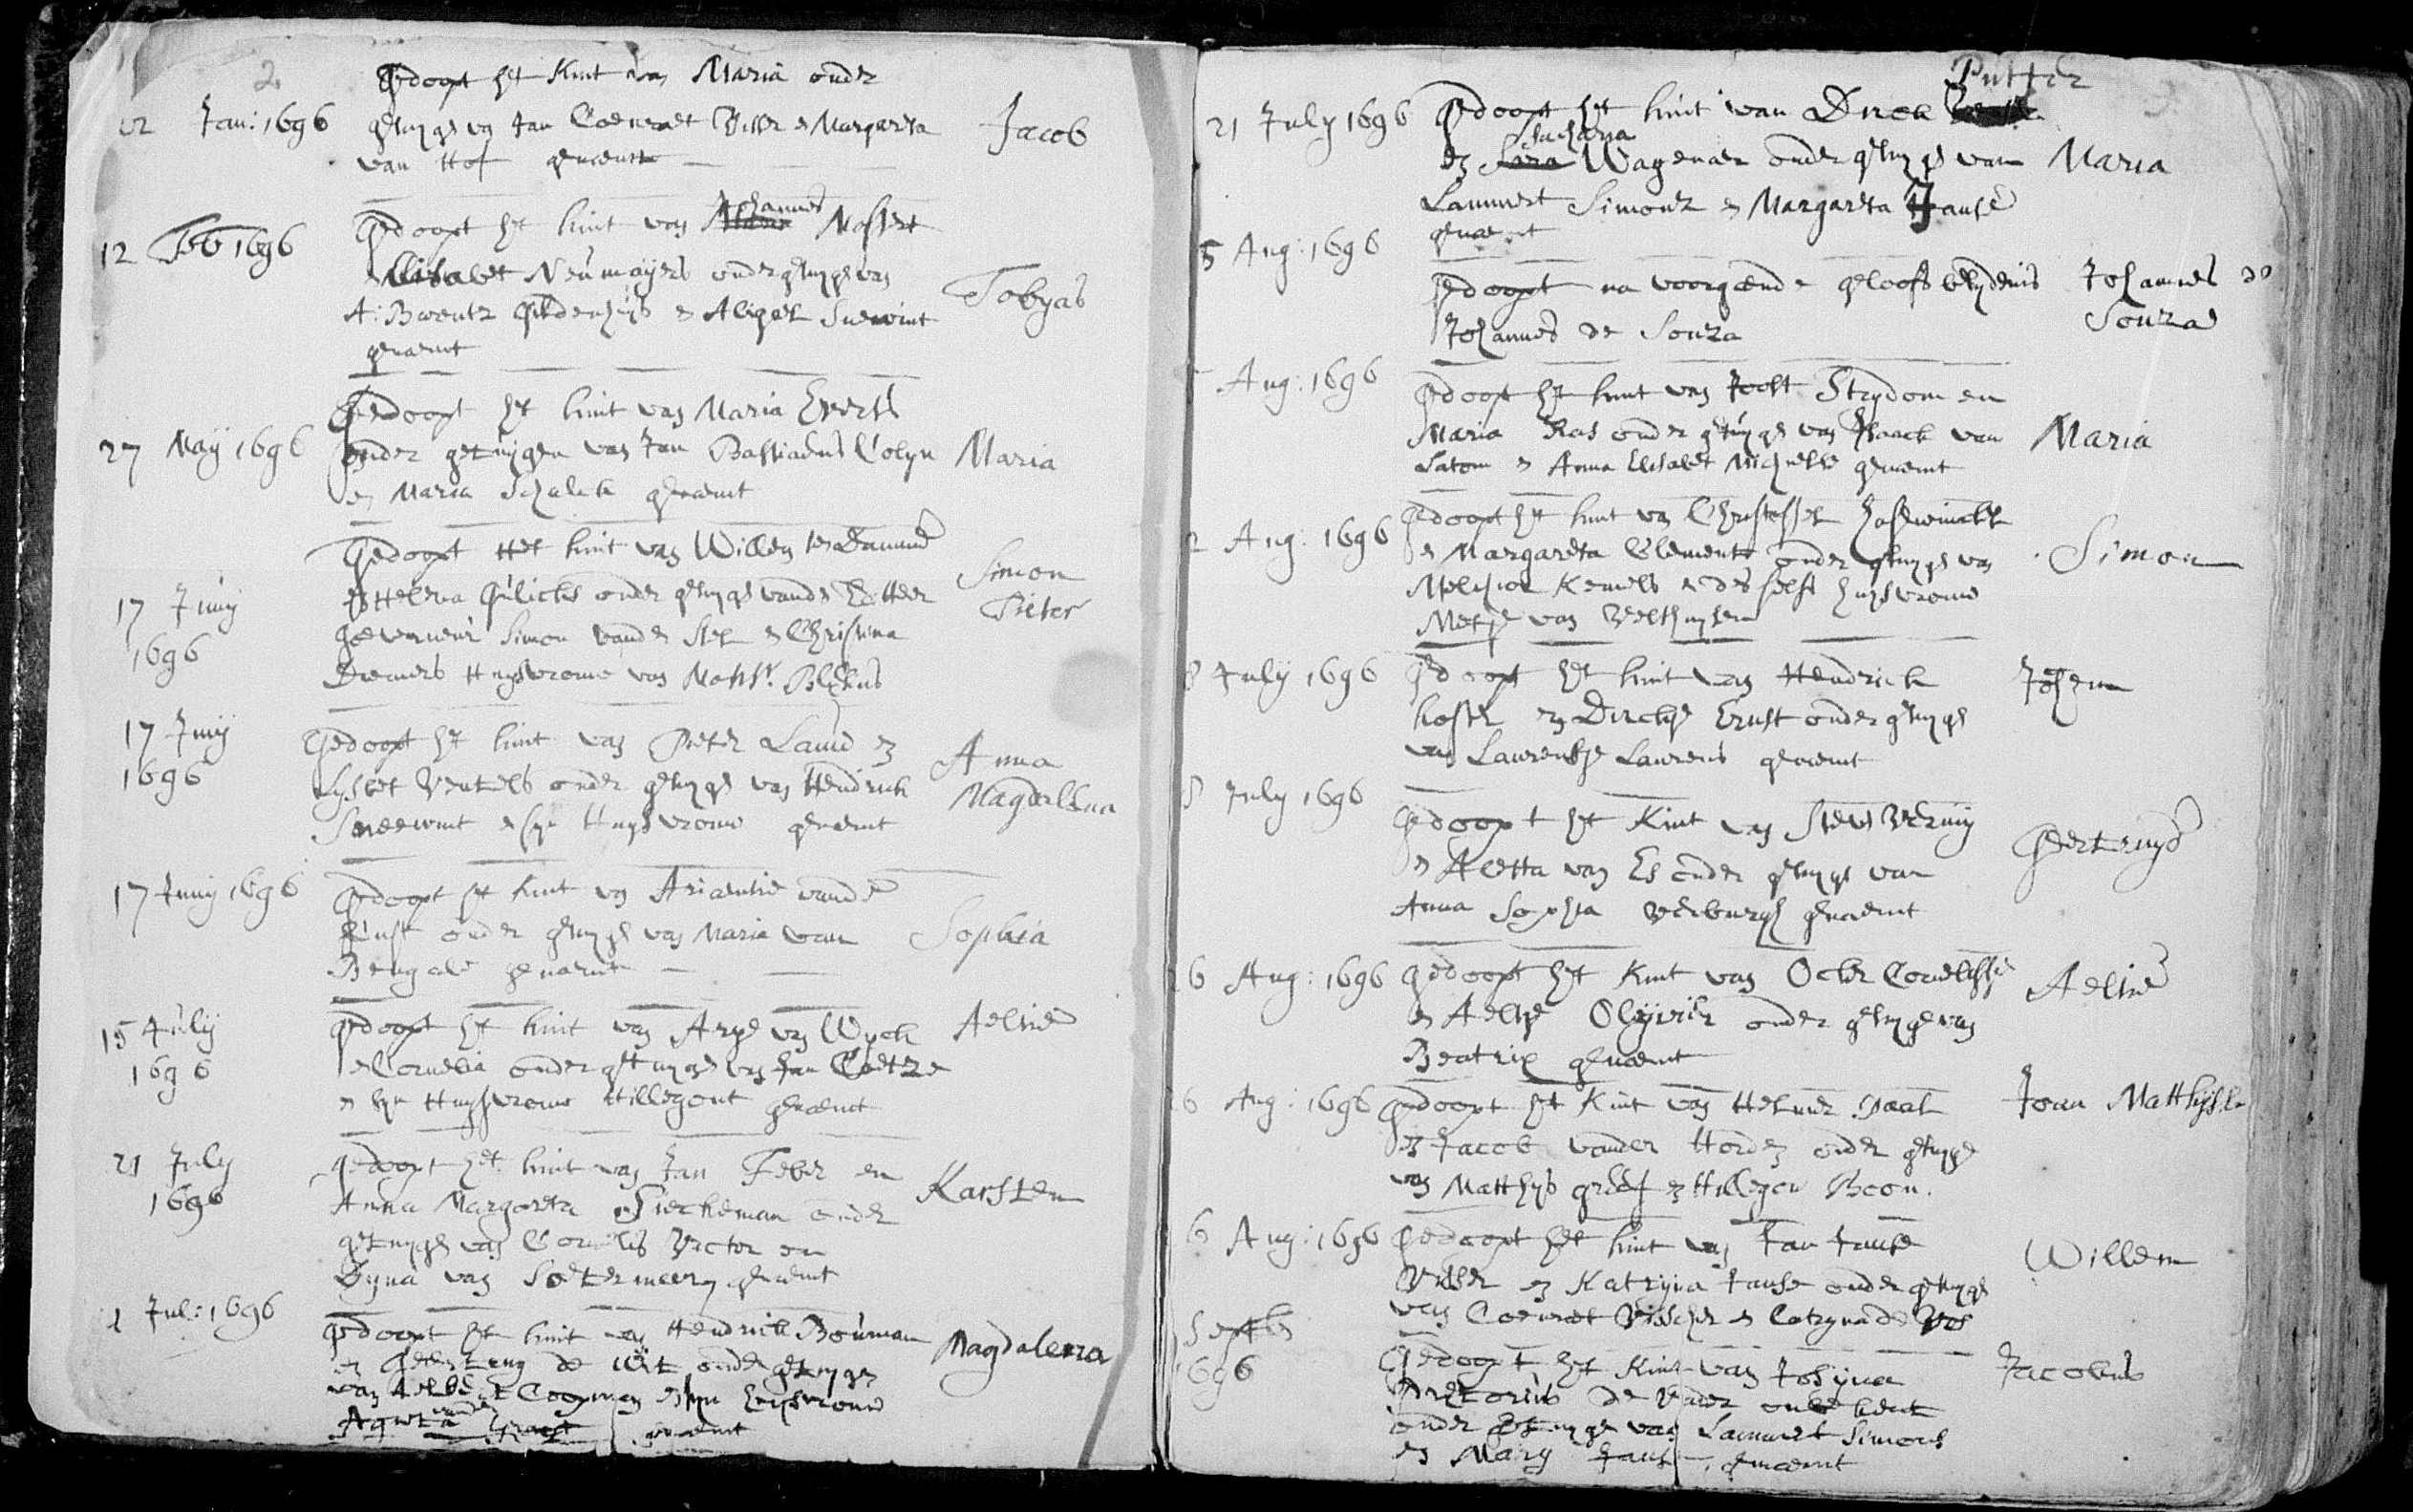 2.
22 Jan: 1696
Gedoopt het Kint van Maria onder
getuyge van Jan Coenraet Visser en Margareta
van Hof genaemt
Jacob
12 Feb 1696
Gedoopt het kint van Johannes Mostert
en Elisabet Neumayers onder getuyge van
A: Barentz Gildenhuys en Aligel Snewint
genaemt
Tobyas
27 Maij 1696
Gedoopt het kint van Maria Everts
onder getuygen van Jan Bastiaens Colyn
en Maria Schalck genaemt
Maria
17 Junij
1696
Gedoopt Het kint van Willem ten Damme
en Helena Gulicks onder getuyge vanden E: Heer
Goeverneur Simon vander Stel en Christina
Diemers Huysvrouw van Monsr. Blesius
Simon
Pieter
17 Junij
1696
Gedoopt het kint van Pieter Laund en
Lysbet Ventels onder getuyge van Hendrick
Sneewint en syn Huysvrouw genaemt
Anna
Magdalena
17 Junij 1696
Gedoopt het Kint van Ariaentie vande
Kust onder getuyge van Maria van
Bengale genaemt
Sophia
15 July
1696
gedoopt het kint van Arye van Wyck
en Cornelia onder getuyge van Jan Coetze
en syn Huysvrouw Hillegont genaemt
Aeltie
21 July
1696
gedoopt het kint van Jan Feber en
Anna Margareta Siecheman onder
getuyge van Cornelis Victor en
Dyna van Soetermeer genaemt
Karsten
1 Jul: 1696
gedoopt het kint van Hendrick Bouman
en Geertruy de Wit onder getuyge
van Aelbert Cooyman en syn huysvrouw
Agneta genaemt
Magdalena
3.
Putter
21 July 1696
Gedoopt het kint van Dirck
Sacharia
en Wagenaer onder getuyge van
Lammert Simonz en Margareta Janse
genaemt
Maria
5 Aug: 1696
Gedoopt na voorgaende geloofs belydenis
Johannes de Souza
Johannes de
Souza
Aug: 1696
Gedoopt het kint van Joost Strydom en
Maria Ras onder getuyge van Isaack van
Latom en Anna Elisabet Michielse genaemt
Maria
2 Aug: 1696
Gedoopt het kint van Christoffel Hasewinckel
en Margareta Clements onder getuyge van
Melchior Kemels en des selfs huysvrouw
Metje van Velthuysen
Simon
8 July 1696
Gedoopt het kint van Hendrick
koster en Dirckje Ernst onder getuyge
van Laurentje Laurens genaemt
8 July 1696
Gedoopt het Kint van Steven Vermy
en Aletta van Es onder getuyge van
Anna Sophia Verburgh genaemt
Geertruyd
6 Aug: 1696
Gedoopt het Kint van Ocker Cornelisse
en Aeltje Olyvier onder getuyge van
Beatrix genaemt
Aeltie
6 Aug: 1696
Gedoopt het Kint van Helmer Spaal
en Jacob vander Horden onder getuyge
van Matthys greef en Hillegon Boom.
Joan Matthysse
6 Aug: 1696
Gedoopt het kint van Jan Janse
Visser en Katryna Janse onder getuyge
van Coenraet Visscher en Catryna de Vos
Willem
Septb
1696
Gedoopt het Kint van Josyna
Pretorius de Vader onbekent
onder getuyge van Lammert Simons
en Mary Jans genaemt
Jacobus